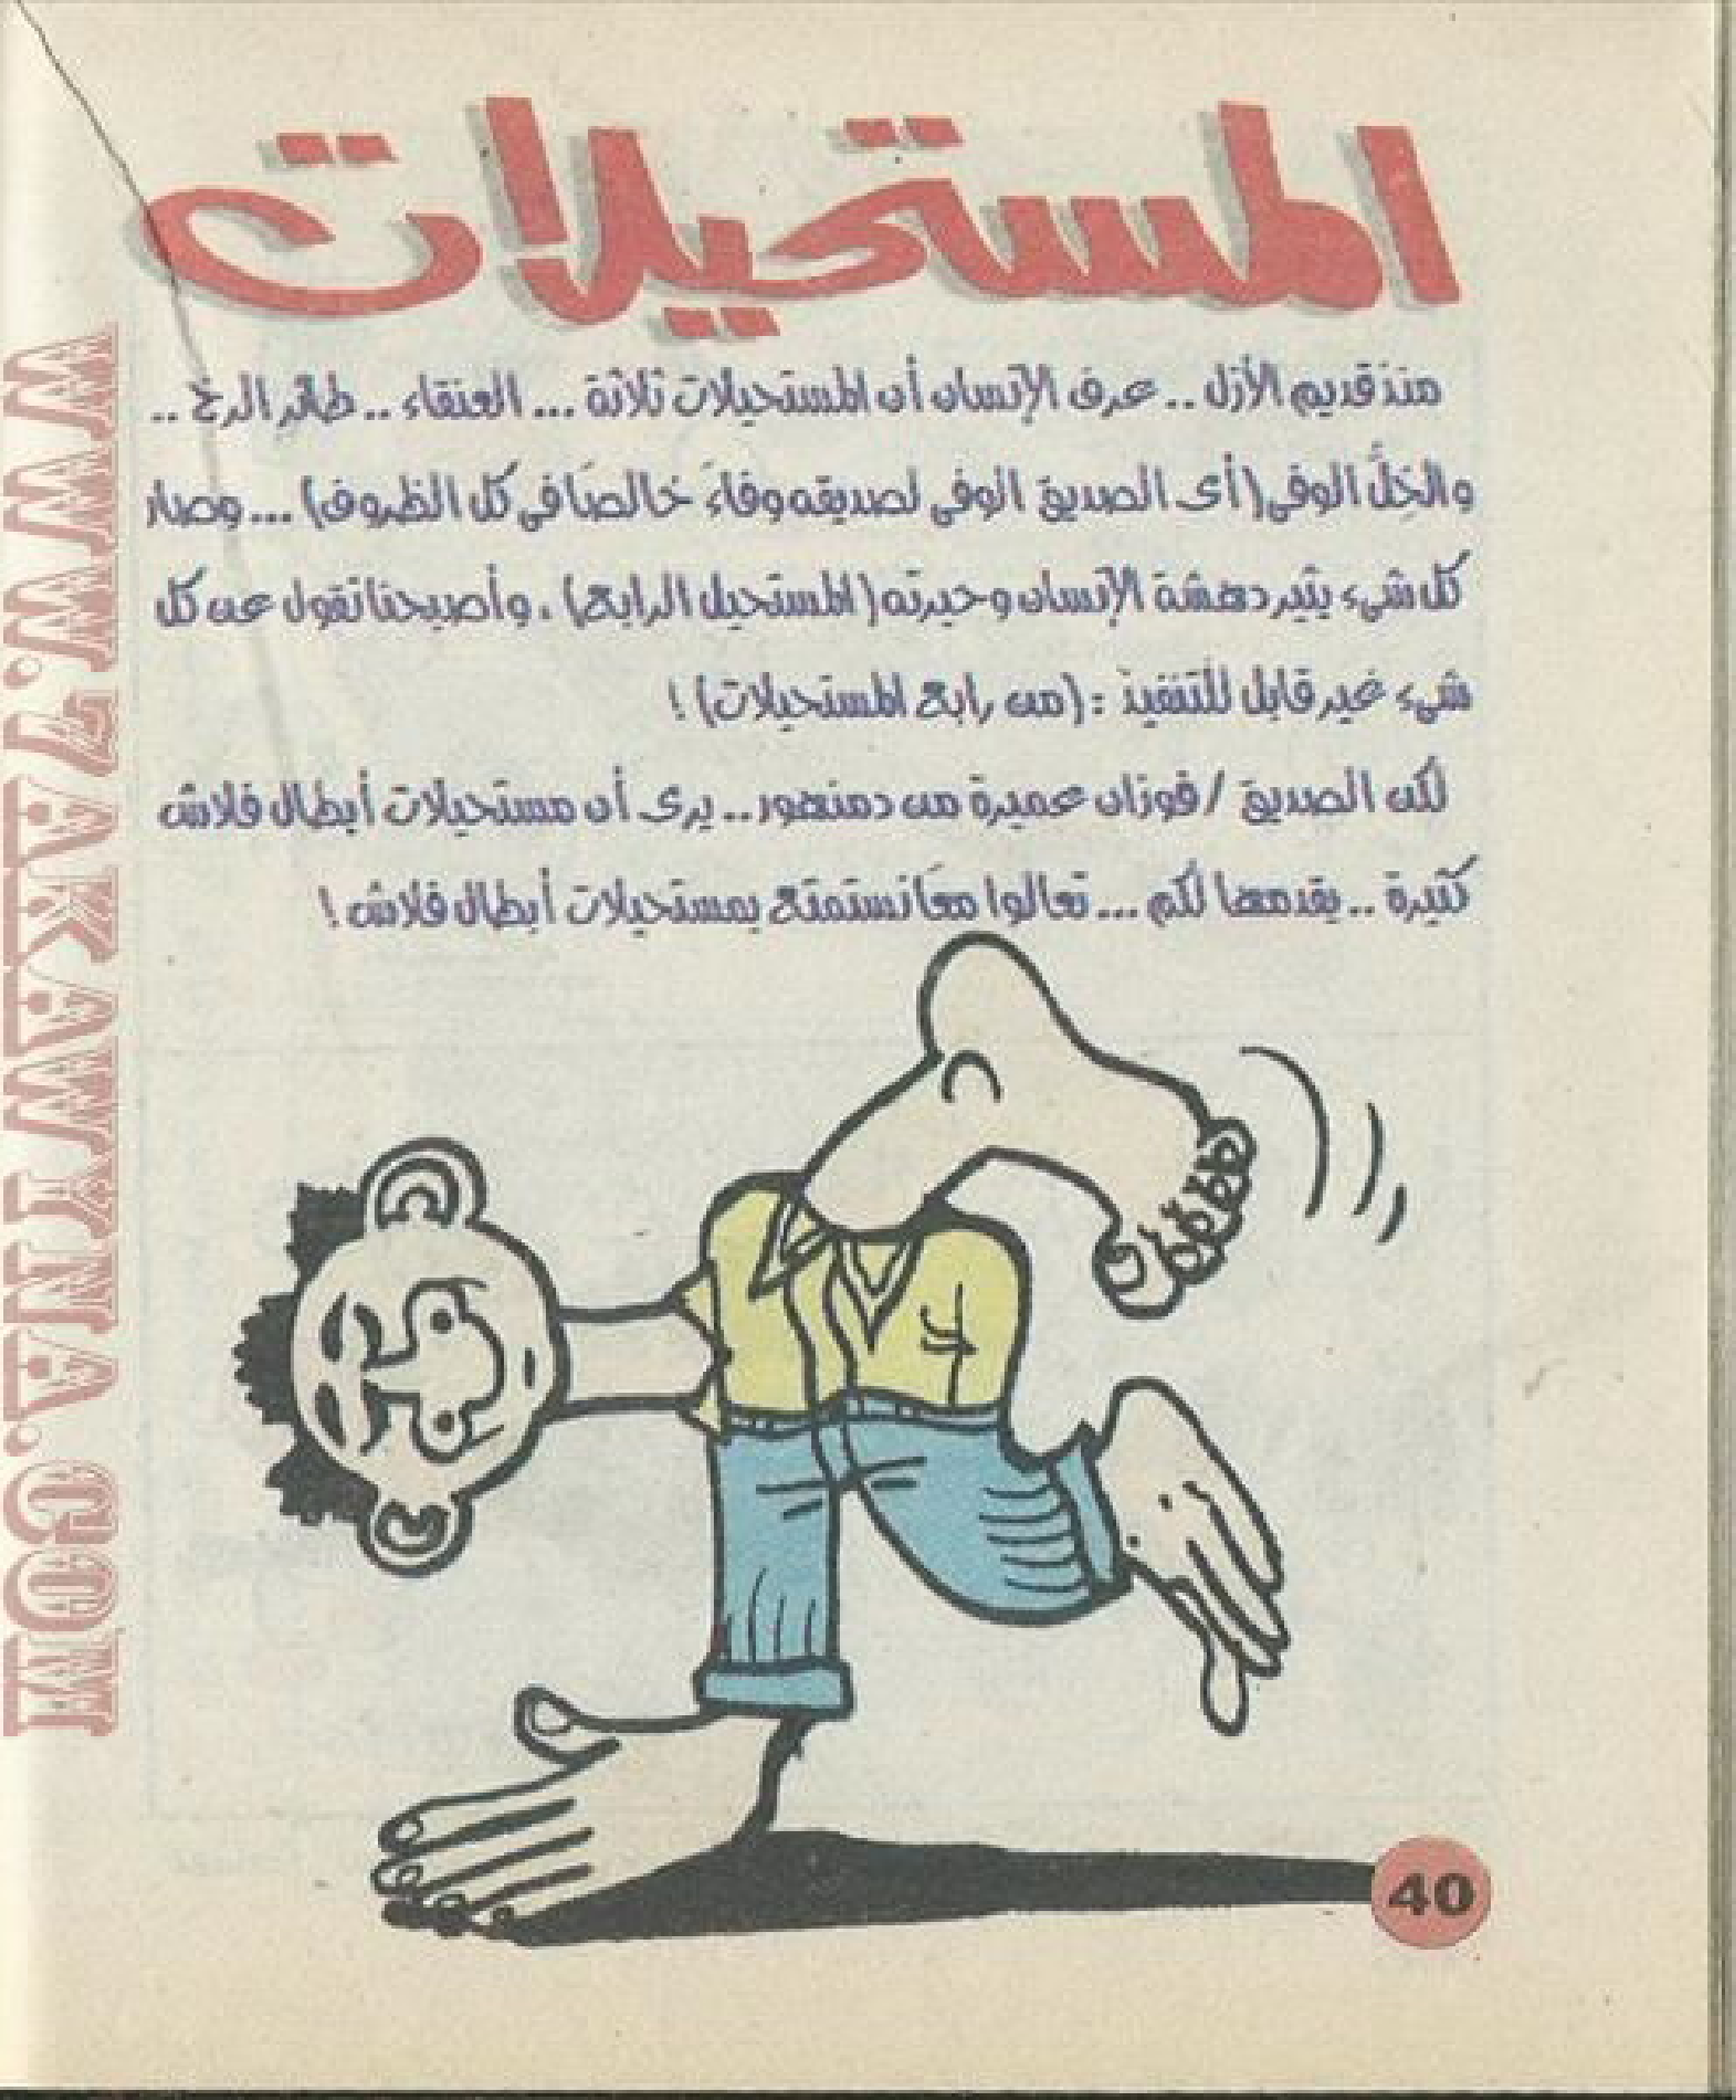 المستحيلات
منذ قديم الأزل .. عرف الإنسان أن المستحيلات ثلاثة ... العنقاء .. طائر الرخ ..
والخِلُّ الوفى (أى الصديق الوفى لصديقه وفاءً خالصًا فى كل الظروف) ... وصار
كل شىء يثير دهشة الإنسان وحيرته (المستحيل الرابع) . وأصبحنا نقول عن كل
شىء غير قابل للتنفيذ : (من رابع المستحيلات) !
لكن الصديق / فوزان عميرة من دمنهور .. يرى أن مستحيلات أبطال فلاش
كثيرة .. يقدمها لكم ... تعالوا معًا نستمتع بمستحيلات أبطال فلاش !
40
WWW.7AKAWITNA.COM